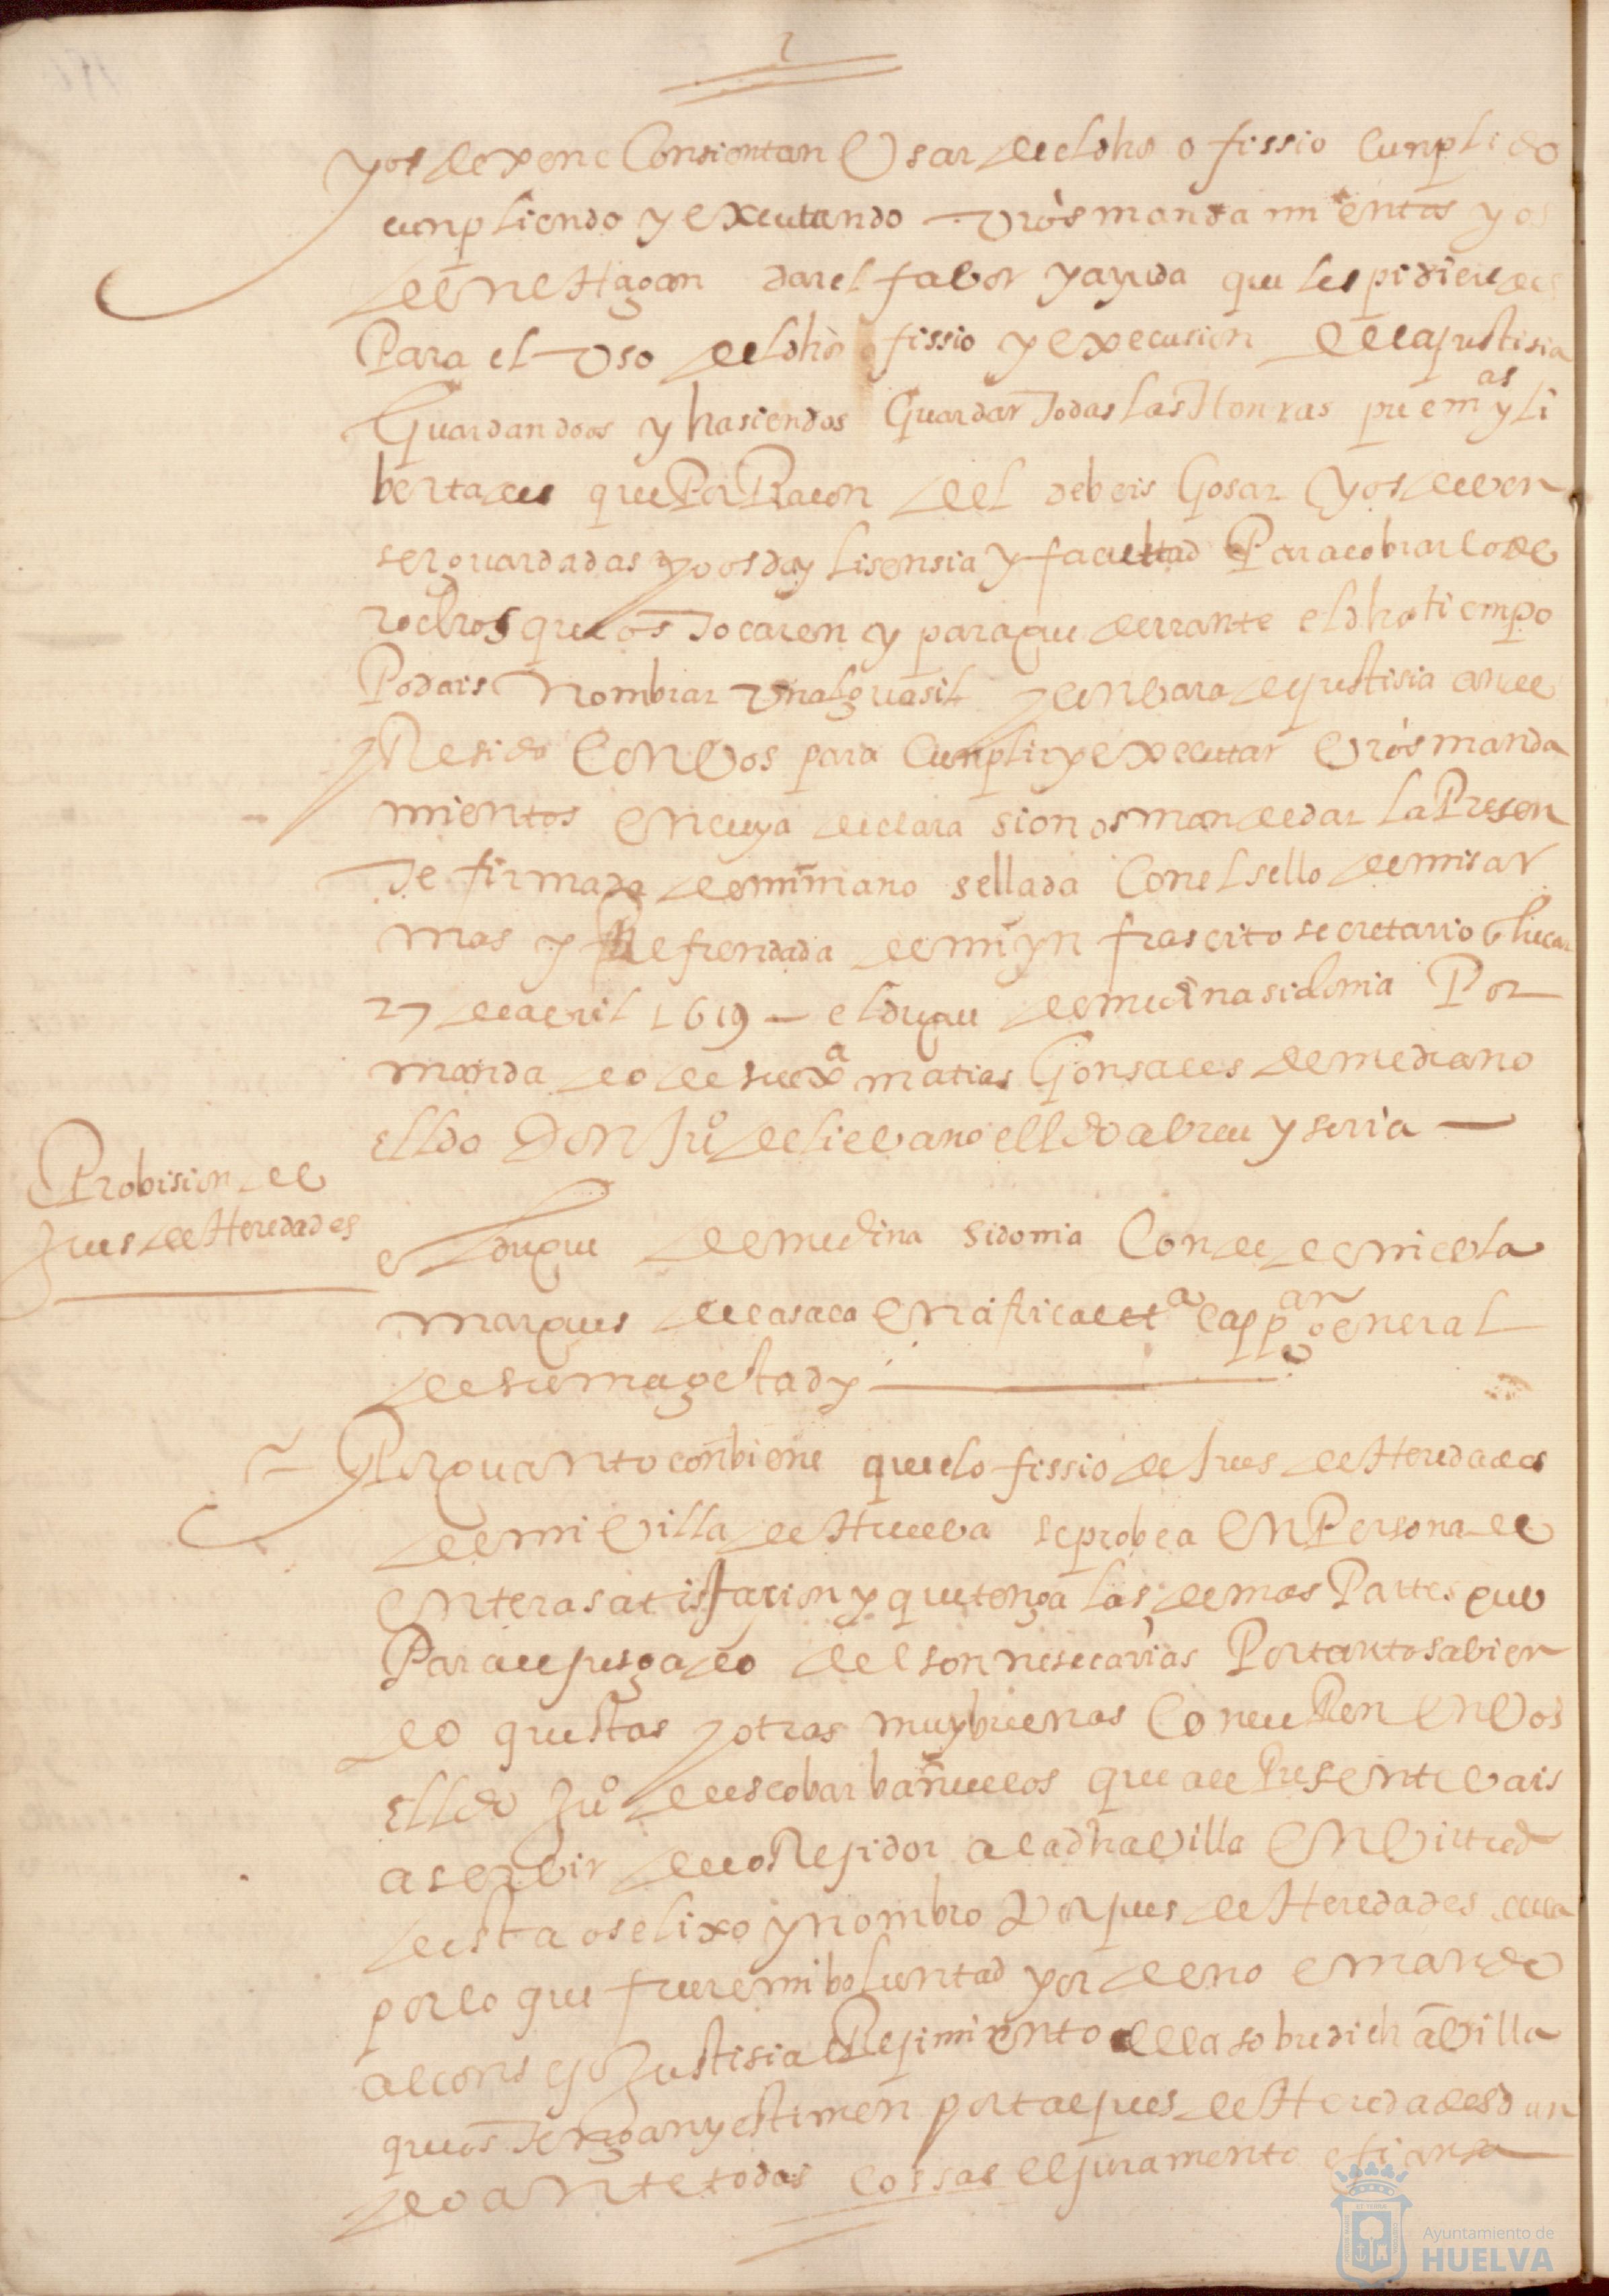 yos dexen e Consientan Usar del dho ofissio cunplido
cunpliendo y executando vros mandamientos y os
den e Hagan dar el fabor y ayuda que les pidieredes
Para el Uso del dho ofissio y execusion de la justisia
Guardandoos y hasiendos Guardar Todas las Honras preemas y li
bertades que Por Raçon del debeis Gosar y os deven
ser guardadas y os doy lisensia y facultad Para cobrar los de
rechos que os Tocaren y para que durante el dho tiempo
Podais Nombrar un alguasil con vara de justisia ande
Resido Con Vos para Cunplir y executar Vros manda
mientos en cuya declarasion os mande dar la Presen
Te firmada de mi mano sellada Con el sello de mis ar
mas y Refrendada de mi yn frascrito secretario
27 de abril 1619 — el duque de medina sidonia Por
mandado de su exa matias Gonsales de medrano
el ldo Don Juo de lievano el ldo abreu y soria —
Probision de
Jues de Heredades
el duque de medina Sidonia Conde de niebla
marques de casaca en africa etta cappan general
de su magestad y
Por quanto conbiene que el ofissio de Jues de Heredades
de mi Villa de Huelva se probea en Persona de
entera satisfacion y que tenga las demas Partes que
Para el jusgado del son nesecarias Por tanto sabien
do questas y otras muy buenas Concurren en Vos
el ldo Juo de escobar bañuelos que al Presente vais
a servir de coRejidor a la dha Villa en Virtud
desta os elixo y nombro Por jues de Heredades della
por lo que fuere mi boluntad y ordeno e mando
al consejo Justisia e Rejimiento de la sobredicha Villa
que os Tengan y estimen por tal jues de Heredades dan
do ante todas cossas el juramento e fiansa
Ayuntamiento de
HUELVA